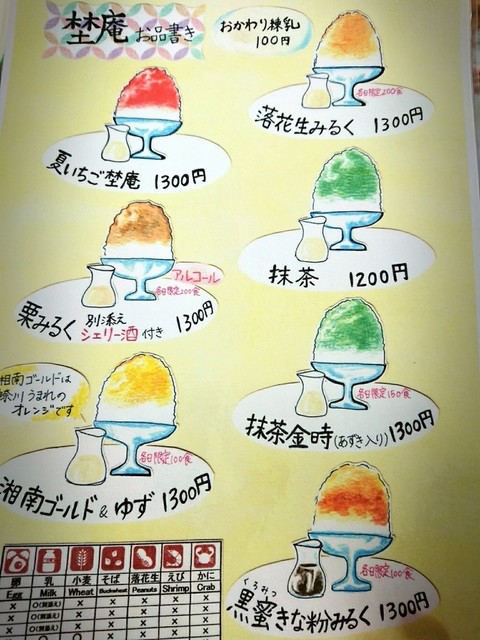 埜庵 お品書き
おかわり練乳
100円
各日限定200食
落花生みるく 1300円
夏いちご埜庵 1300円
抹茶 1200円
アルコール
各日限定200食
栗みるく 別添え シェリー酒 付き 1300円
各日限定150食
抹茶金時(あずき入り) 1300円
湘南ゴールドは
神奈川うまれの
オレンジです
各日限定100食
湘南ゴールド&ゆず 1300円
各日限定100食
くろみつ
黒蜜きな粉みるく 1300円
卵 乳 小麦 そば 落花生 えび かに
Egg Milk Wheat Buckwheat Peanuts Shrimp Crab
× ○(別添え) × × × × ×
× ○(別添え) × × × × ×
× ○(別添え) × × × × ×